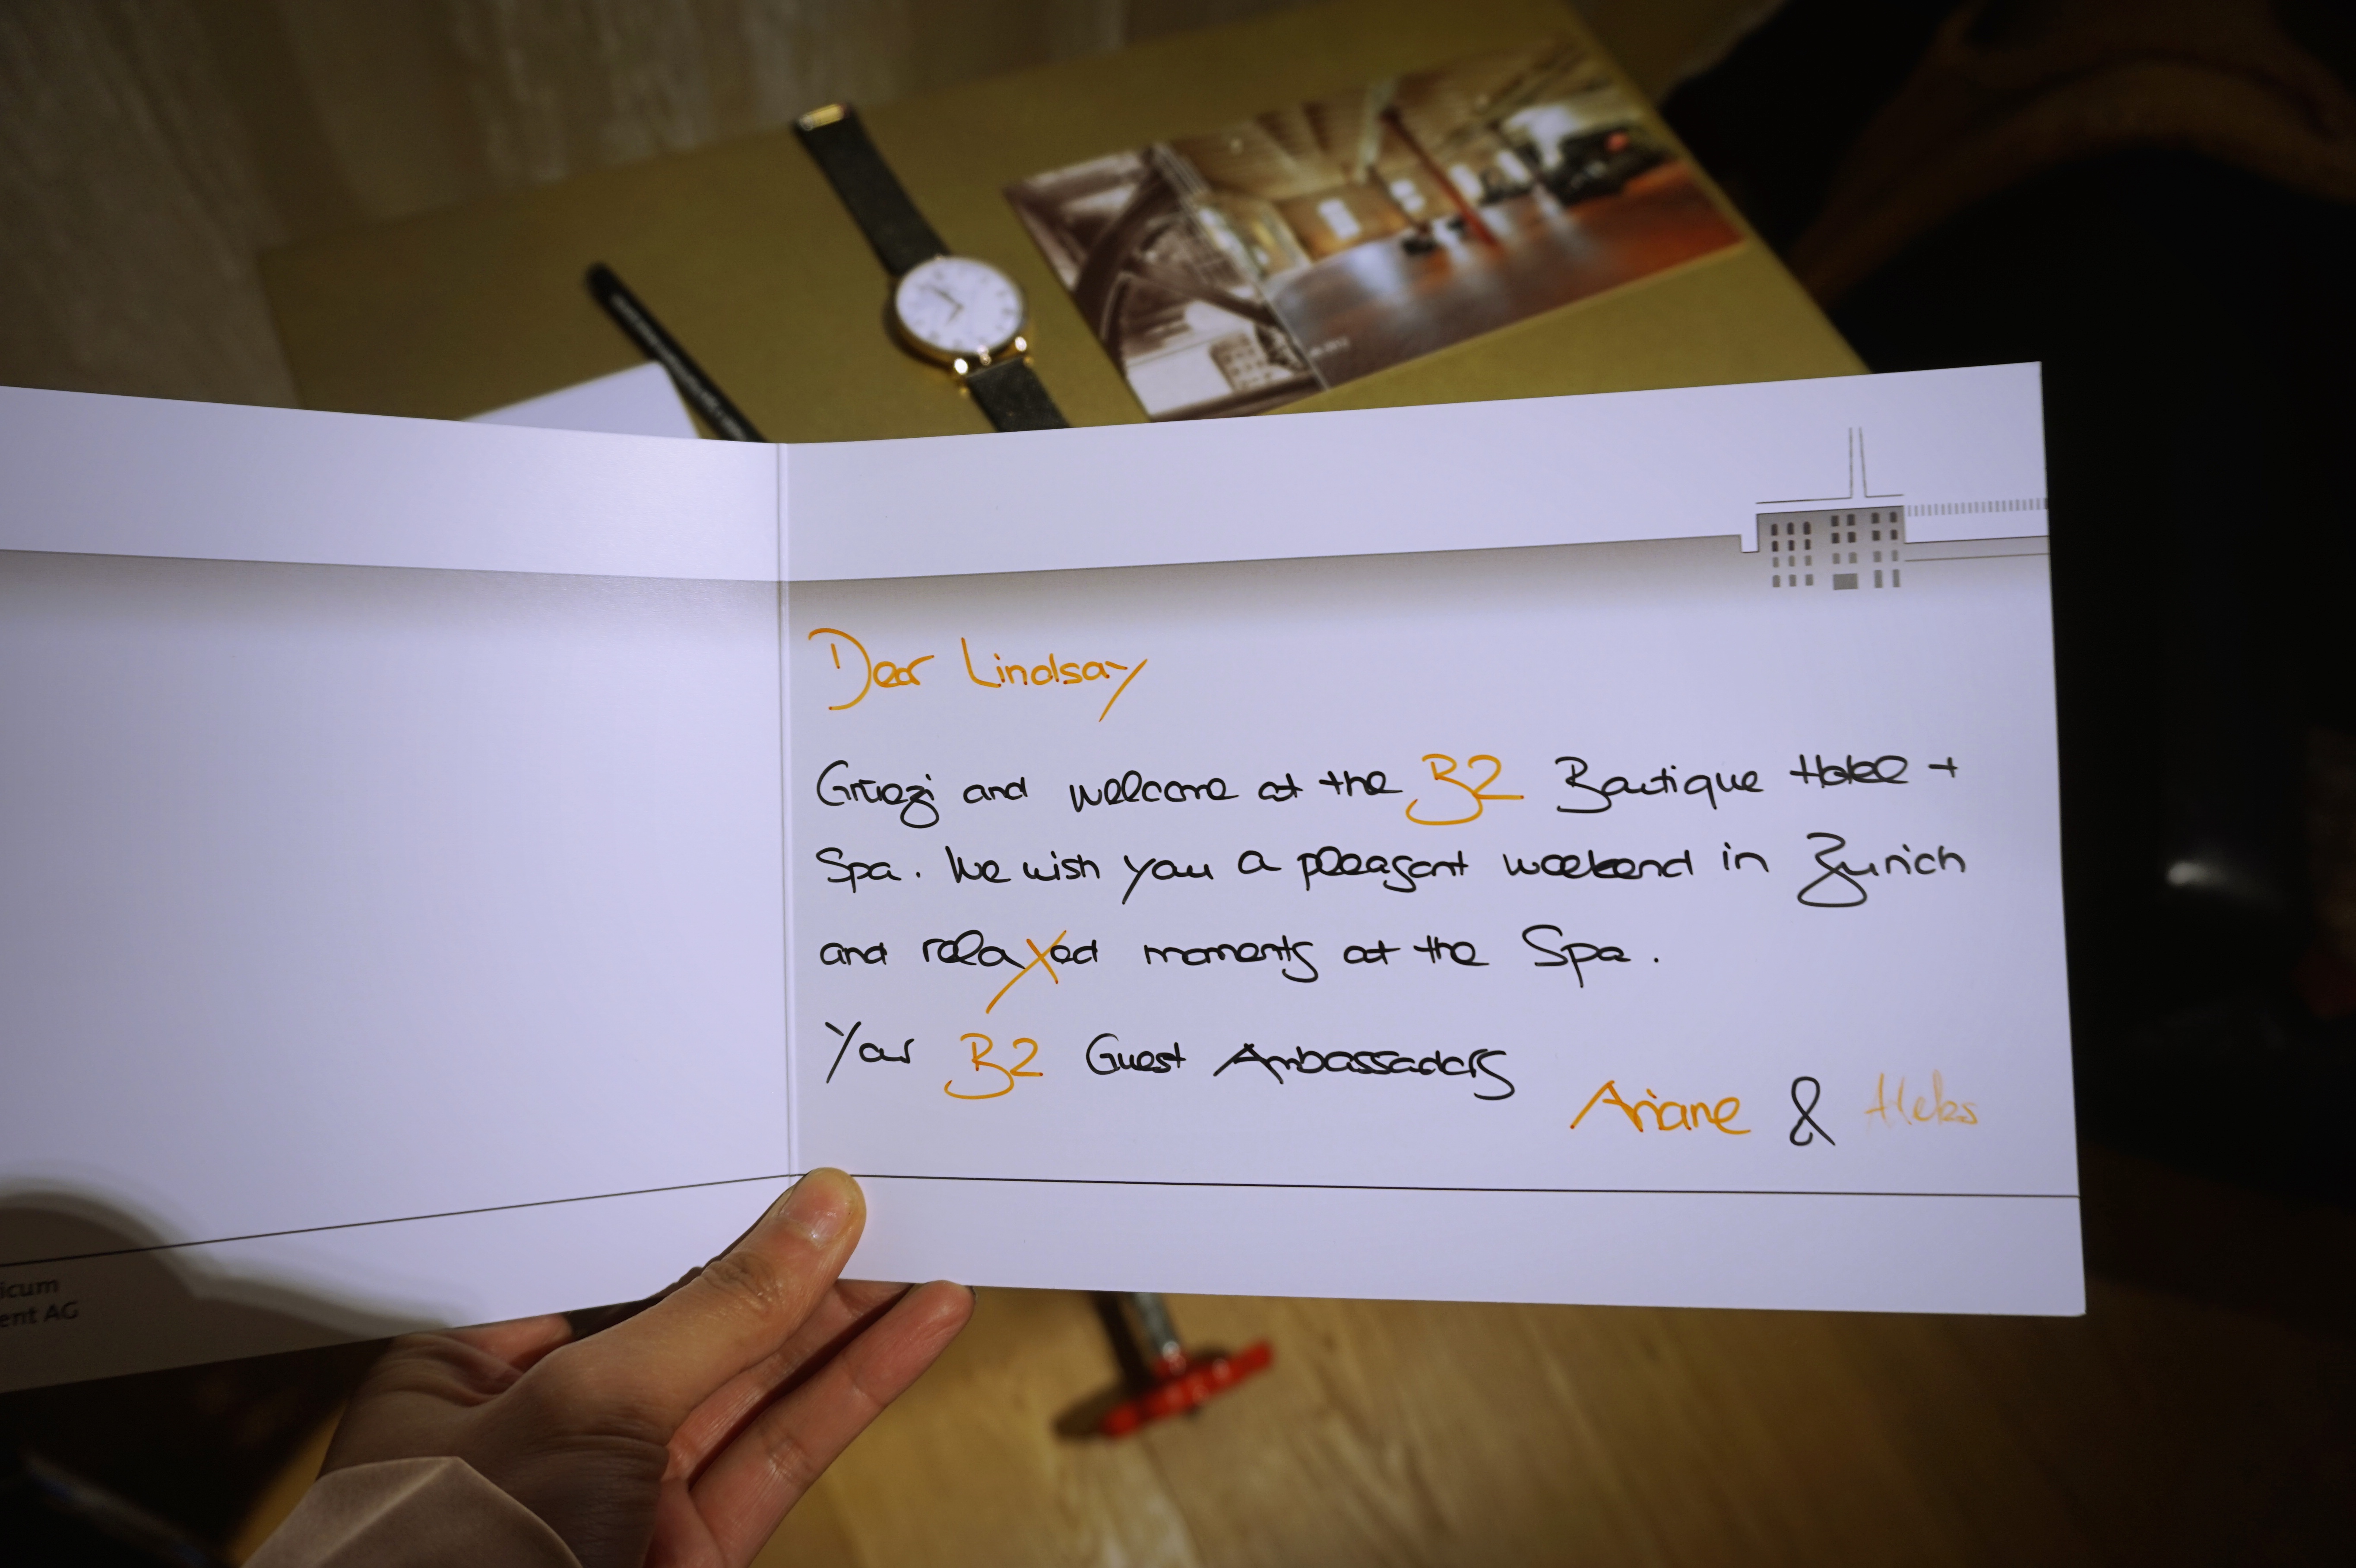 Dear Lindsay
Grüezi and welcome at the B2 Boutique Hotel +
Spa. We wish you a pleasant weekend in Zurich
and relaxed moments at the Spa.
Your B2 Guest Ambassadors
Ariane & Aleks
icum
ent AG